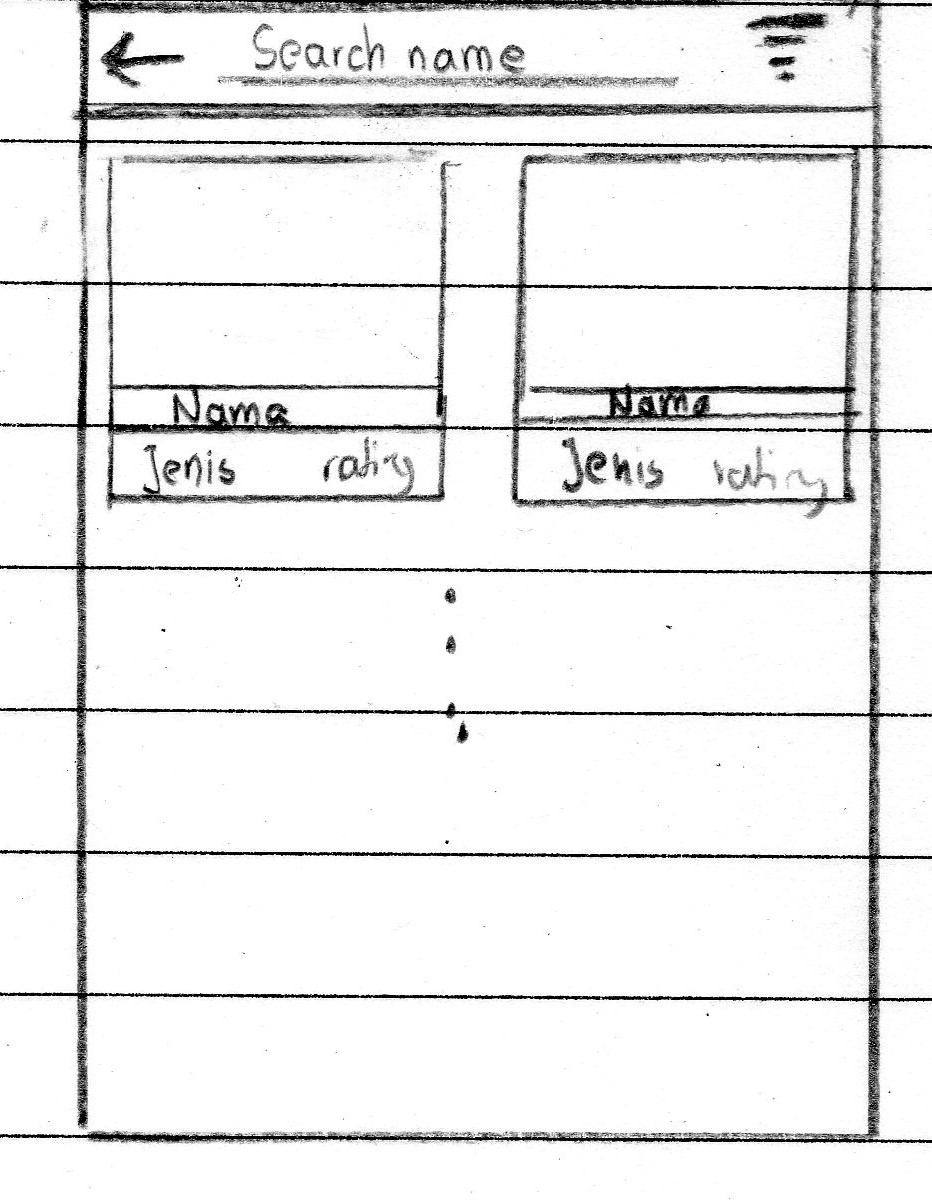 Search name
Nama Nama
Jenis rating Jenis rating